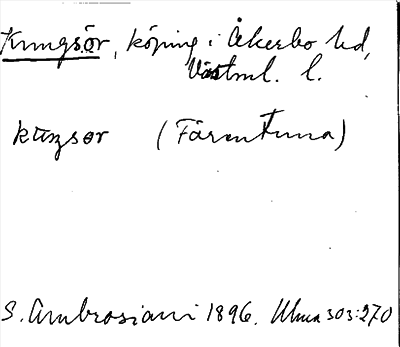 Kungsör, köping i Åkerbo hd,
Västml. l.
kuŋsor (Färentuna)
S. Ambrosiani 1896. Ulma 303:270